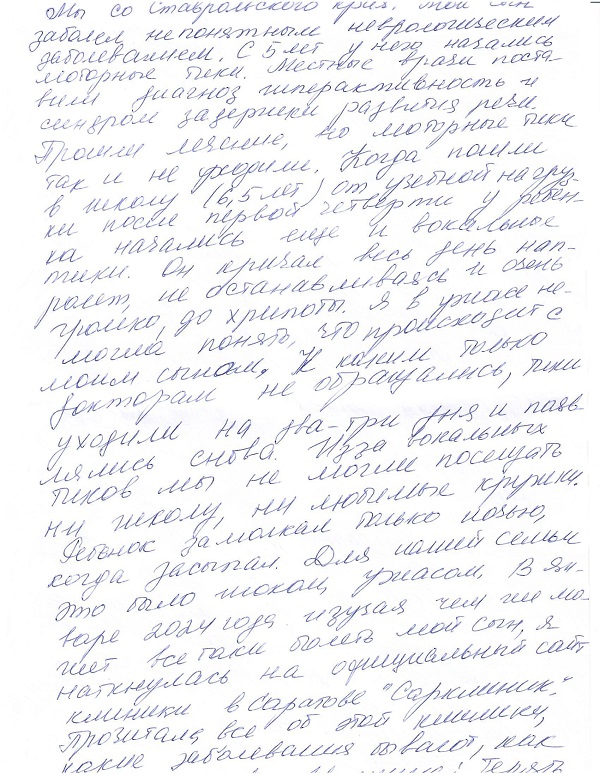 Мы со Ставропольского края. Мой сын
заболел непонятным неврологическим
заболеванием. С 5 лет у него начались
моторные тики. Местные врачи поста-
вили диагноз гиперактивность и
синдром задержки развития речи
Прошли лечение, но моторные тики
так и не уходили. Когда пошли
в школу (6,5 лет) от учебной нагруз-
ки после первой четверти у ребен-
ка начались еще и вокальные
тики. Он кричал весь день нап-
ролет, не останавливаясь и очень
громко, до хрипоты. Я в ужасе не-
могла понять, что происходит с
моим сыном. К каким только
докторам не обращались, тики
уходили на два-три дня и появ-
лялись снова. Из за вокальных
тиков мы не могли посещать
ни школу, ни любимые кружки.
Ребенок замолкал только ночью,
когда засыпал. Для нашей семьи
это было шоком, ужасом. В ян-
варе 2024 года изучая чем же мо-
жет все таки болеть мой сын, я
наткнулась на официальный сайт
клиники в Саратове "Сарклиник".
Прочитала, все об этой клинике,
какие заболевания бывают, как
Терять